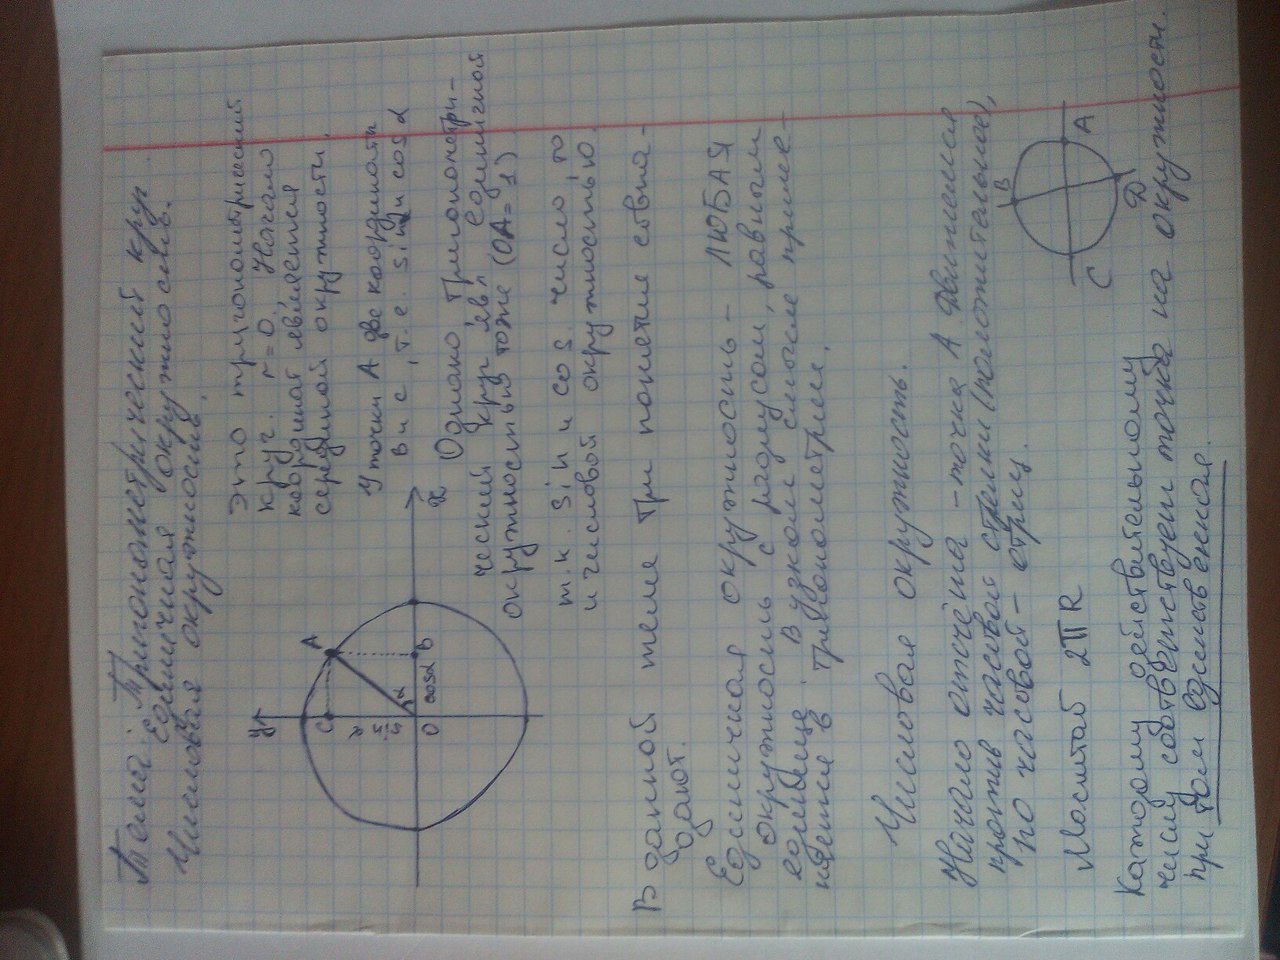 Тема: Тригонометрический круг.
Единичная окружность.
Числовая окружность.
Это тригонометрический
круг. r=0, Начало
координат является
серединой окружности.
У точки A две координаты
B и C, т.е. sin и cos α
Однако тригонометри-
ческий круг явл единичной
окружностью тоже (OA=1)
т.к. sin и cos число, то
и числовой окружностью.
y
C
A
sin α
α
O
cosα
B
x
В данной теме три понятия совпа-
дают.
Единичная окружность – ЛЮБАЯ
окружность с радиусом, равным
единице. В узком смысле приме-
няется в тригонометрии.
Числовая окружность.
Начало отсчёта – точка A. Движемся
против часовой стрелки (положительные),
по часовой – отриц.
Масштаб 2πR
B
A
C
D
Каждому действительному
числу соответствует точка на окружности.
при том единственная.